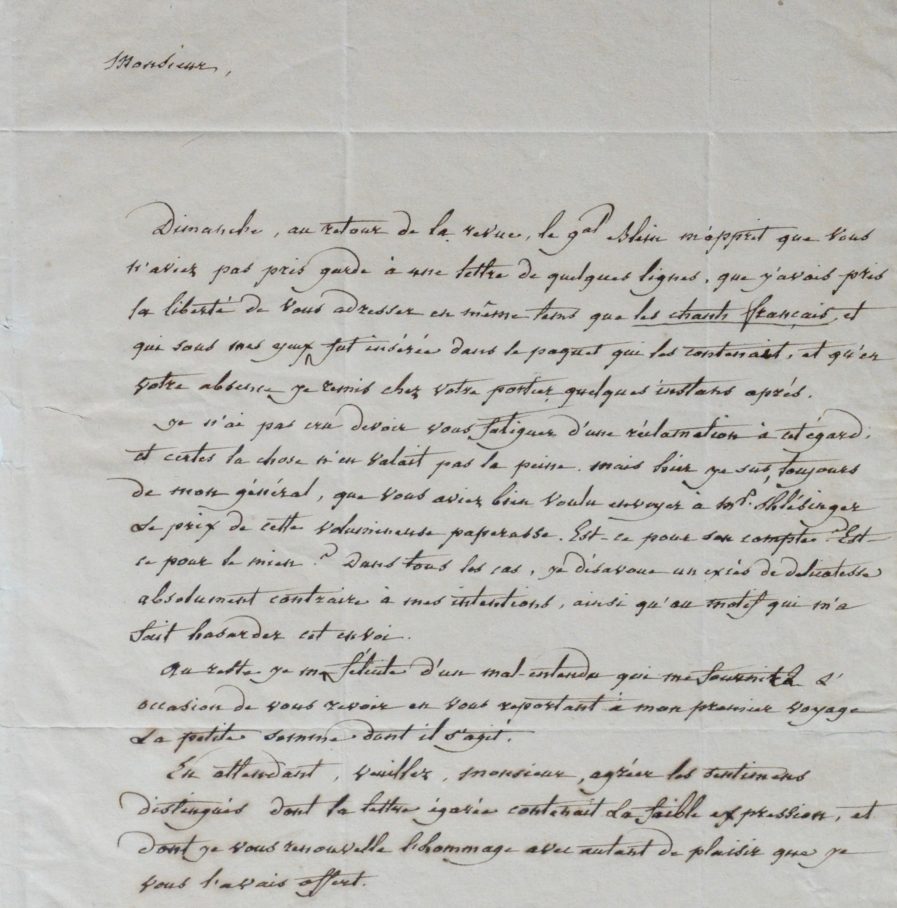 Monsieur,
Dimanche, au retour de la revue, le gal Blein m'apprit que vous
n'aviez pas pris garde à une lettre de quelques lignes, que j'avais pris
la liberté de vous adresser en même tems que les chants français, et
qui sous mes yeux fut insérée dans le paquet qui les contenait, et qu'en
votre absence je remis chez votre portier quelques instans après.
je n'ai pas cru devoir vous fatiguer d'une réclamation à cet égard,
et certes la chose n'en valait pas la peine. mais hier je sus, toujours
de mon général, que vous aviez bien voulu envoyer à mr. Shlésinger
Le prix de cette volumineuse paperasse. Est-ce pour son compte ? Est-
ce pour le mien ? Dans tous les cas, je désavoue un excès de délicatesse
absolument contraire à mes intentions, ainsi qu'au motif qui m'a
fait hasarder cet envoi.
Au reste je me félicite d'un mal-entendu qui me fournira L'
occasion de vous revoir en vous reportant à mon premier voyage
La petite somme dont il s'agit.
En attendant, veuillez, monsieur, agréer les sentimens
distingués dont la lettre égarée contenait La faible expression, et
dont je vous renouvelle l'hommage avec autant de plaisir que je
vous l'avais offert.